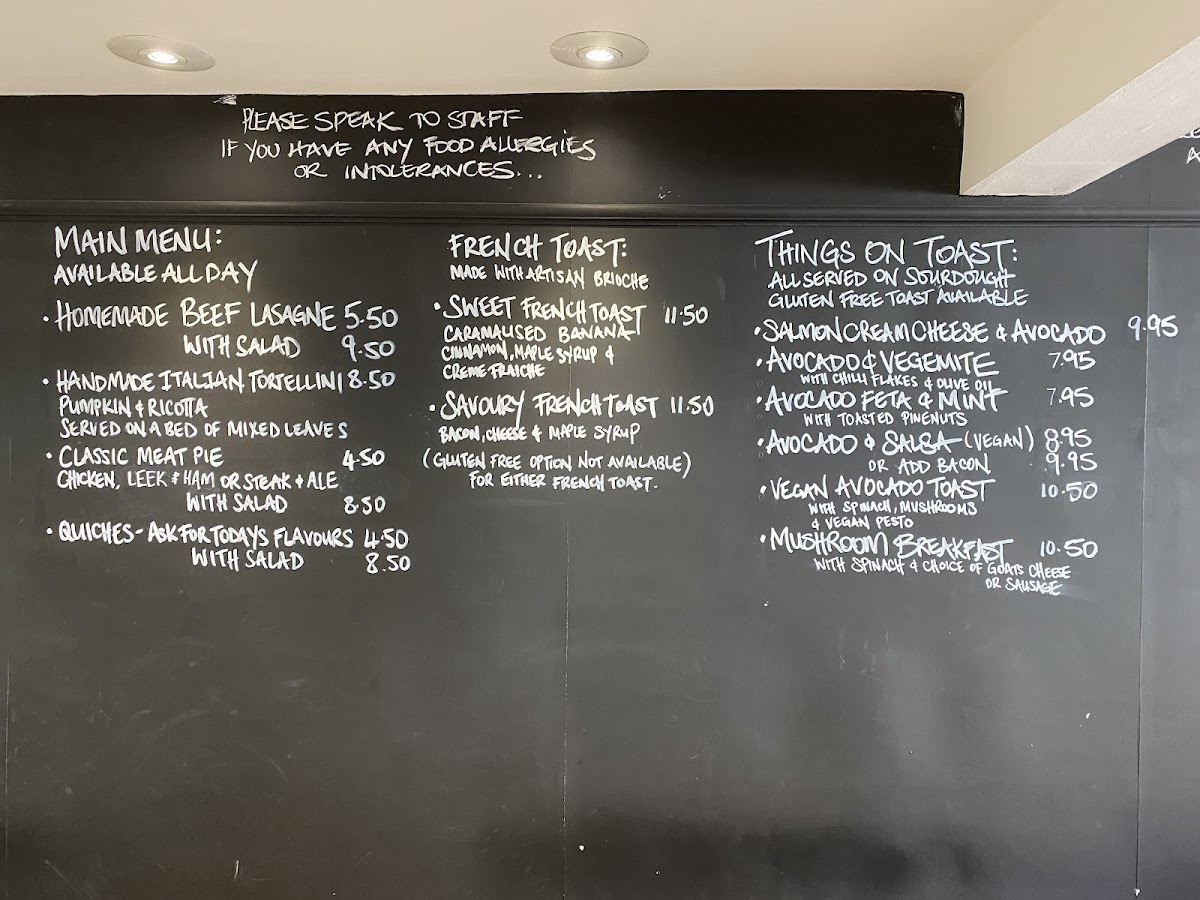 PLEASE SPEAK TO STAFF
IF YOU HAVE ANY FOOD ALLERGIES
OR INTOLERANCES...
MAIN MENU:
AVAILABLE ALL DAY
• HOMEMADE BEEF LASAGNE 5.50
WITH SALAD 9.50
• HANDMADE ITALIAN TORTELLINI 8.50
PUMPKIN & RICOTTA
SERVED ON A BED OF MIXED LEAVES
• CLASSIC MEAT PIE 4.50
CHICKEN, LEEK & HAM OR STEAK & ALE
WITH SALAD 8.50
• QUICHES - ASK FOR TODAYS FLAVOURS 4.50
WITH SALAD 8.50
FRENCH TOAST:
MADE WITH ARTISAN BRIOCHE
• SWEET FRENCH TOAST 11.50
CARAMALISED BANANA
CINNAMON, MAPLE SYRUP &
CREME FRAICHE
• SAVOURY FRENCH TOAST 11.50
BACON, CHEESE & MAPLE SYRUP
(GLUTEN FREE OPTION NOT AVAILABLE)
FOR EITHER FRENCH TOAST.
THINGS ON TOAST:
ALL SERVED ON SOURDOUGH
GLUTEN FREE TOAST AVAILABLE
• SALMON CREAM CHEESE & AVOCADO 9.95
• AVOCADO & VEGEMITE 7.95
WITH CHILLI FLAKES & OLIVE OIL
• AVOCADO FETA & MINT 7.95
WITH TOASTED PINENUTS
• AVOCADO & SALSA (VEGAN) 8.95
OR ADD BACON 9.95
• VEGAN AVOCADO TOAST 10.50
WITH SPINACH, MUSHROOMS
& VEGAN PESTO
• MUSHROOM BREAKFAST 10.50
WITH SPINACH & CHOICE OF GOATS CHEESE
OR SAUSAGE